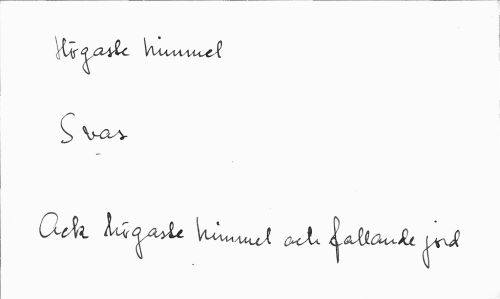 Högaste himmel
Svas
Ack högaste himmel och fallande jord